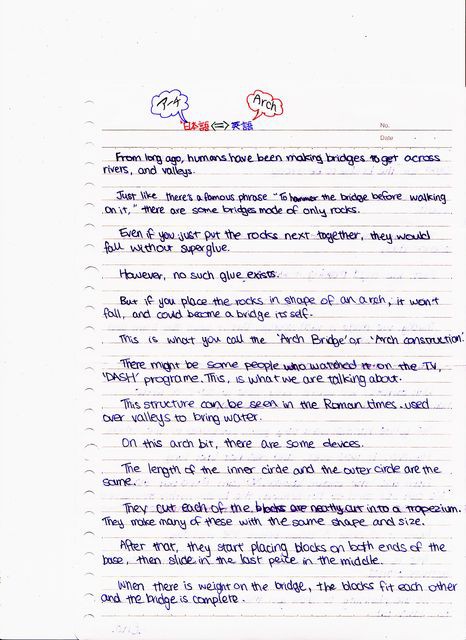 アーチ Arch
日本語 ⇔ 英語
No.
Date
From long ago, humans have been making bridges to get across
rivers, and valleys.
Just like there's a famous phrase "To hammer the bridge before walking
on it," there are some bridges made of only rocks.
Even if you just put the rocks next together, they would
fall without superglue.
However, no such glue exists.
But if you place the rocks in shape of an arch, it won't
fall, and could become a bridge itself.
This is what you call the 'Arch Bridge' or 'Arch construction'.
There might be some people who watched it on the TV,
'DASH' programe. This, is what we are talking about.
This structure can be seen in the Roman times. used
over valleys to bring water.
On this arch bit, there are some devices.
The length of the inner circle and the outer circle are the
same.
They cut each of the blocks are neatly cut into a trapezium.
They make many of these with the same shape and size.
After that, they start placing blocks on both ends of the
base, then slide in the last peice in the middle.
When there is weight on the bridge, the blocks fit each other
and the bridge is complete.